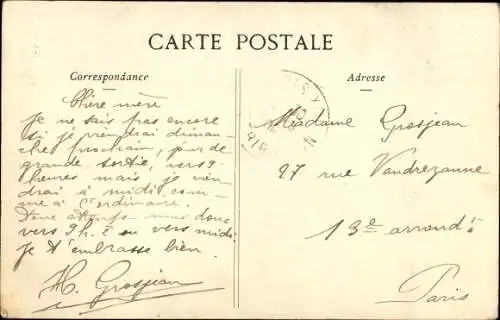 CARTE POSTALE
Correspondance
Adresse
Chère mère
Je ne sais pas encore
si je viendrai diman-
che prochain, jour de
grande sortie, vers 9
heures mais je vien
drai à midi com-
me à l'ordinaire.
donc
vers 9 h. ½ ou vers midi
Je t'embrasse bien.
H. Grosjean
Madame Grosjean
27 rue Vandrezanne
13e arrondt
Paris